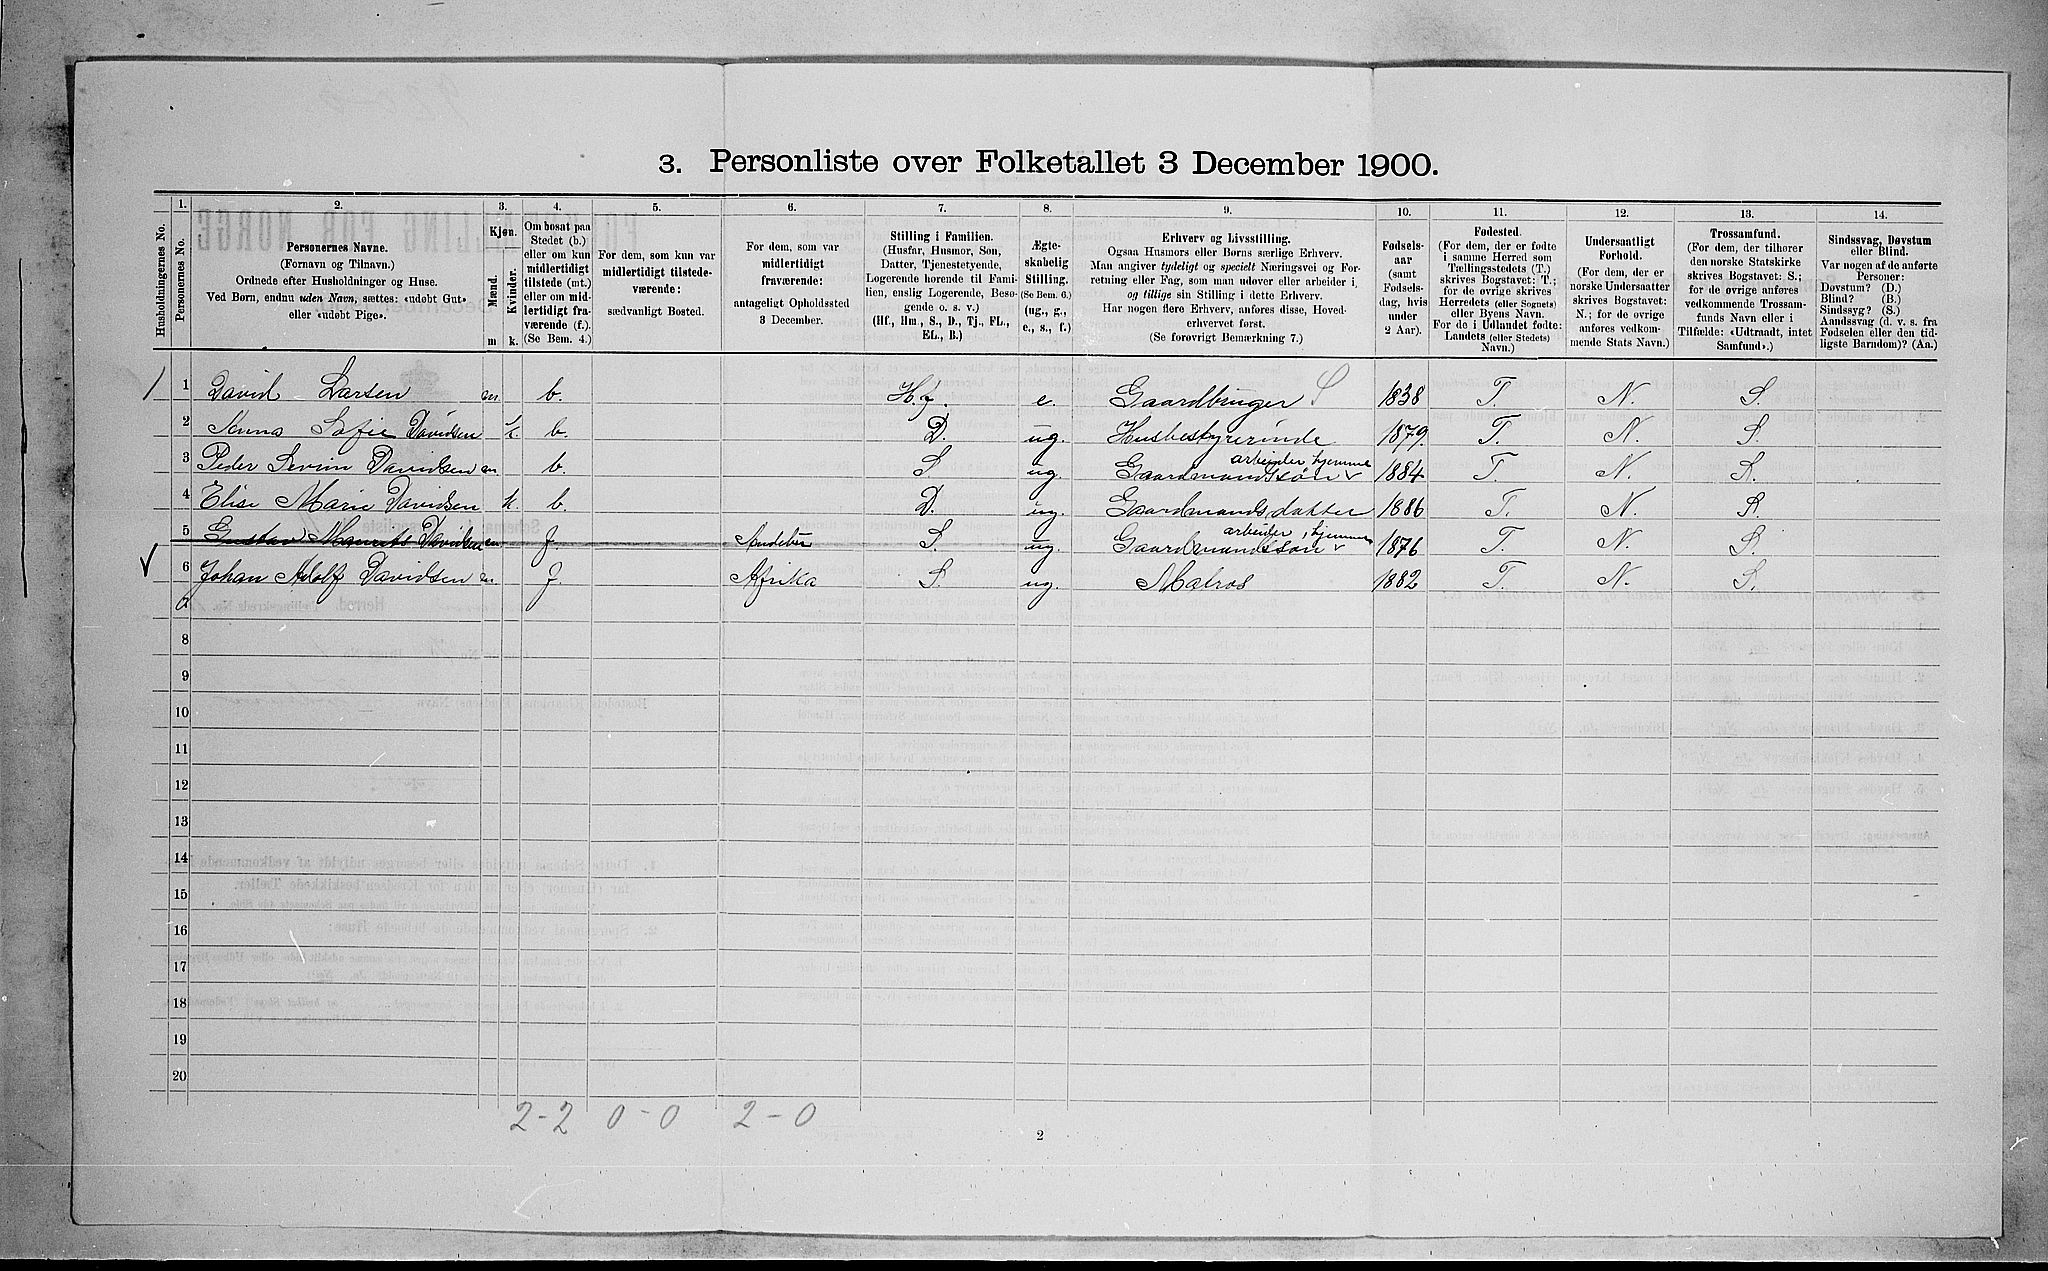 3. Personliste over Folketallet 3 December 1900.
Husholdningernes No.
1. Personernes No.
2.
Personernes Navne.
(Fornavn og Tilnavn.)
Ordnede efter Husholdninger og Huse.
Ved Børn, endnu uden Navn, sættes: «udøbt Gut»
eller «udøbt Pige».
3.
Kjøn.
Mænd. Kvinder.
m k.
4.
Om bosat paa
Stedet (b.)
eller om kun
midlertidigt
tilstede (mt.)
eller om mid-
lertidigt fra-
værende (f.).
(Se Bem. 4.)
5.
For dem, som kun var
midlertidigt tilstede-
værende:
sædvanligt Bosted.
6.
For dem, som var
midlertidigt
fraværende:
antageligt Opholdssted
3 December.
7.
Stilling i Familien.
(Husfar, Husmor, Søn,
Datter, Tjenestetyende,
Logerende hørende til Fami-
lien, enslig Logerende, Besø-
gende o. s. v.)
(Hf., Hm., S., D., Tj., FL.,
EL., B.)
8.
Ægte-
skabelig
Stilling.
(Se Bem. 6.)
(ug., g.,
e., s., f.)
9.
Erhverv og Livsstilling.
Ogsaa Husmors eller Børns særlige Erhverv.
Man angiver tydeligt og specielt Næringsvei og For-
retning eller Fag, som man udøver eller arbeider i,
og tillige sin Stilling i dette Erhverv.
Har nogen flere Erhverv, anføres disse, Hoved-
erhvervet først.
(Se forøvrigt Bemærkning 7.)
10.
Fødsels-
aar
(samt
Fødsels-
dag, hvis
under
2 Aar).
11.
Fødested.
(For dem, der er fødte
i samme Herred som
Tællingsstedets (T.)
skrives Bogstavet: T.;
for de øvrige skrives
Herredets (eller Sognets)
eller Byens Navn.
For de i Udlandet fødte:
Landets (eller Stedets)
Navn.)
12.
Undersaatligt
Forhold.
(For de, der er
norske Undersaatter
skrives Bogstavet:
N.; for de øvrige
anføres vedkom-
mende Stats Navn.)
13.
Trossamfund.
(For dem, der tilhører
den norske Statskirke
skrives Bogstavet: S.;
for de øvrige anføres
vedkommende Trossam-
funds Navn eller i
Tilfælde: «Udtraadt, intet
Samfund».)
14.
Sindssvag, Døvstum
eller Blind.
Var nogen af de anførte
Personer:
Døvstum? (D.)
Blind? (B.)
Sindssyg? (S.)
Aandssvag (d. v. s. fra
Fødselen eller den tid-
ligste Barndom)? (Aa.)
1 1 David Larsen m b. Hf. e. Gaardbruger S 1838 T. N. S.
2 Anna Sofie Davidsen k. b. D. ug. Husbestyrerinde 1879. T. N. S.
arbeider, hjemme
3 Peder Severin Davidsen m b. S ug. Gaardmandssøn 1884 T. N. S.
4 Elise Marie Davidsen k. b. D. ug. Gaardmandsdatter 1886 T. N. S.
arbeider, hjemme
5 Gustav Mauritz Davidsen m f. Andebu S. ug. Gaardmandssøn 1876 T. N. S.
6 Johan Adolf Davidsen m f. Afrika S. ug. Matros 1882 T. N. S.
7
8
9
10
11
12
13
14
15
16
17
18
19
20
2-2 0-0 2-0
2